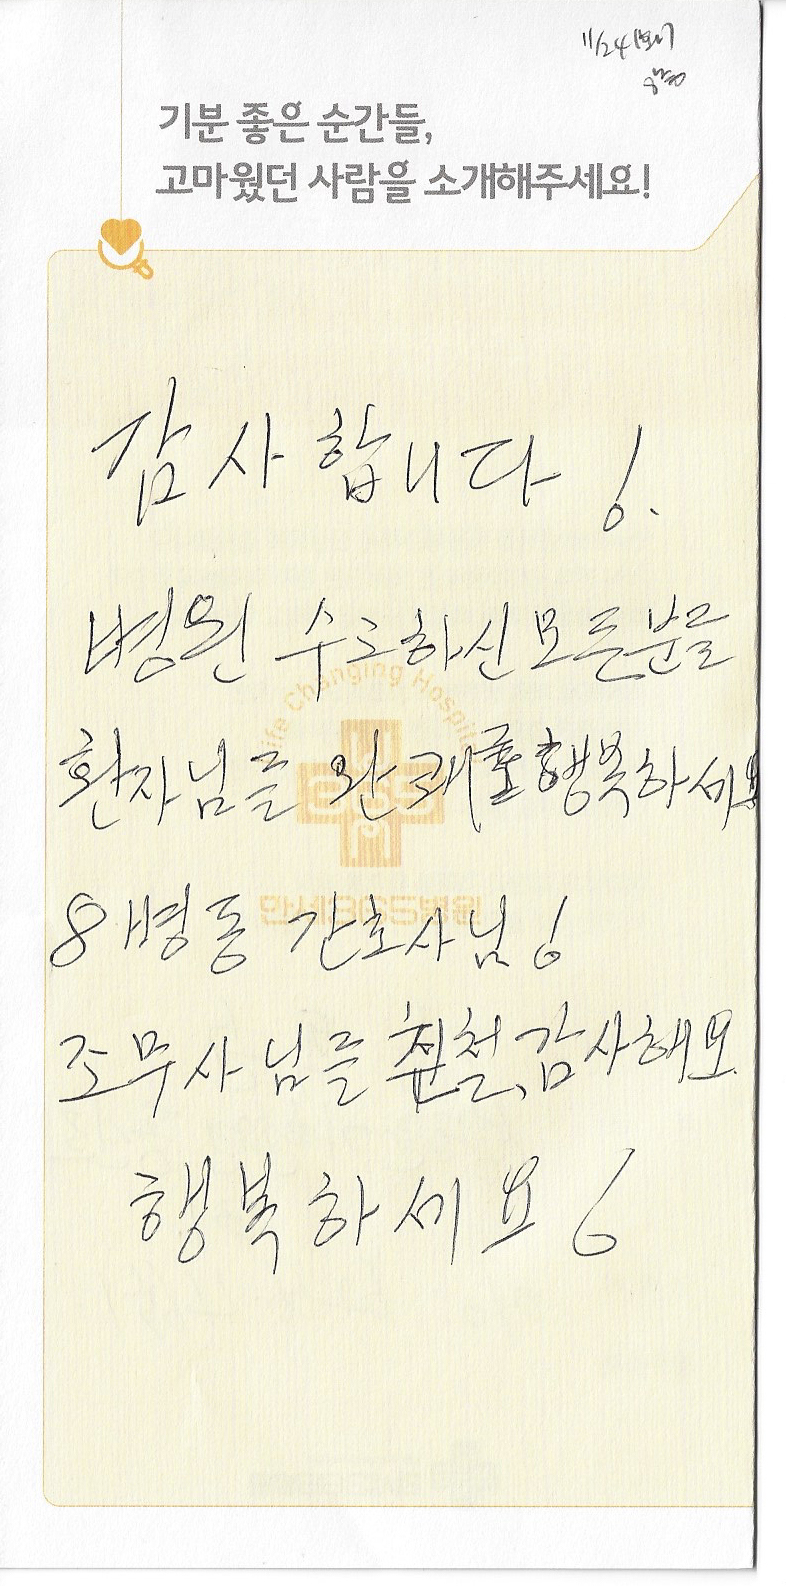 11/24
기분 좋은 순간들,
고마웠던 사람을 소개해주세요!
감사합니다!.
병원 수고하신 모든분들
환자님들 완쾌 행복하세요
Life Changing Hospit
만세365병원
8병동 간호사님!
조무사님들 친철, 감사해요.
행복하세요!